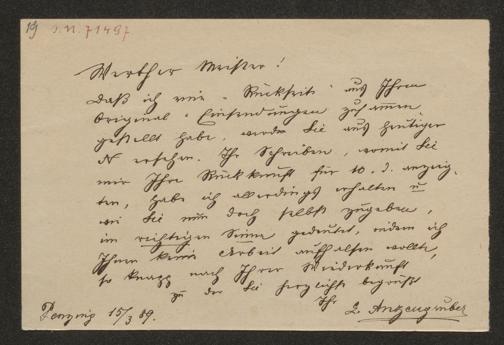 19 I.N. 71497
Werther Meister!
Daß ich eine "Rückseite" aus Ihren
Original-Einsendungen zusammen
gestellt habe, werden Sie aus heutiger
N ersehen. Ihr Schreiben, womit Sie
mir Ihre Rückkunft für 10. d. anzeig-
ten, habe ich allerdings erhalten u
wie Sie nun doch selbst zugeben,
im richtigen Sinne gedeutet, indem ich
Ihnen keine Arbeit aufhalsen wollte,
so knapp nach Ihrer Wiederkunft
zu der Sie herzlichst begrüßt
Ihr L Anzengruber
Penzing 15/3 89.